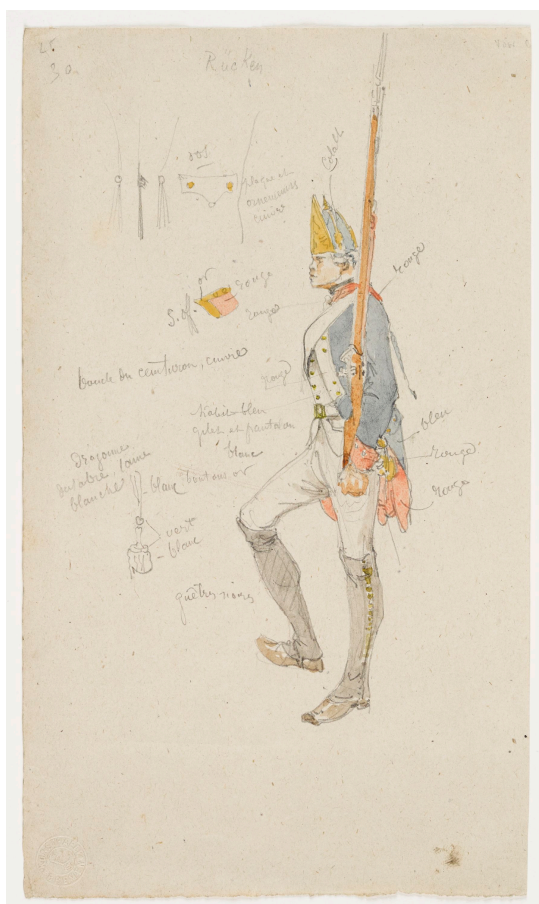 25
30
Rücken
dos
plaque et
ornements
cuivre
rouge
or
rouge
S. of.
rouge
boucle du ceinturon, cuivre
rouge
habit bleu
gilet et pantalon
blanc
bleu
rouge
rouge
dragonne
du sabre, laine
blanche
blanc
boutons or
vert
blanc
guêtres noires